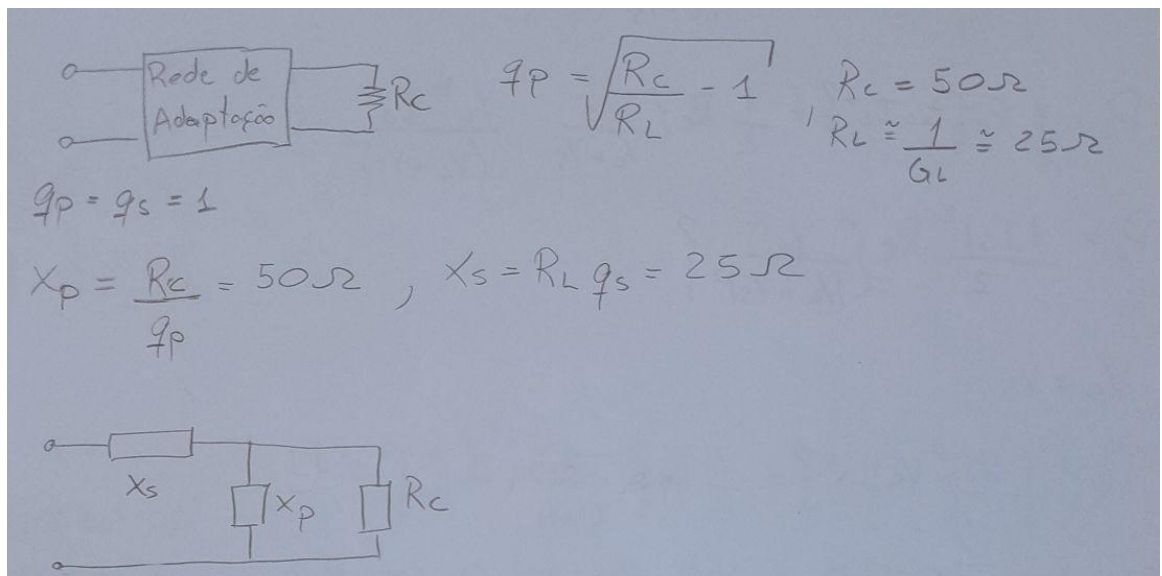 Rede de Adaptação
Rc
qp = √(Rc/RL - 1) , Rc = 50Ω
RL ≅ 1/GL ≅ 25Ω
qp = qs = 1
Xp = Rc/qp = 50Ω , Xs = RL qs = 25Ω
Xs
Xp
Rc